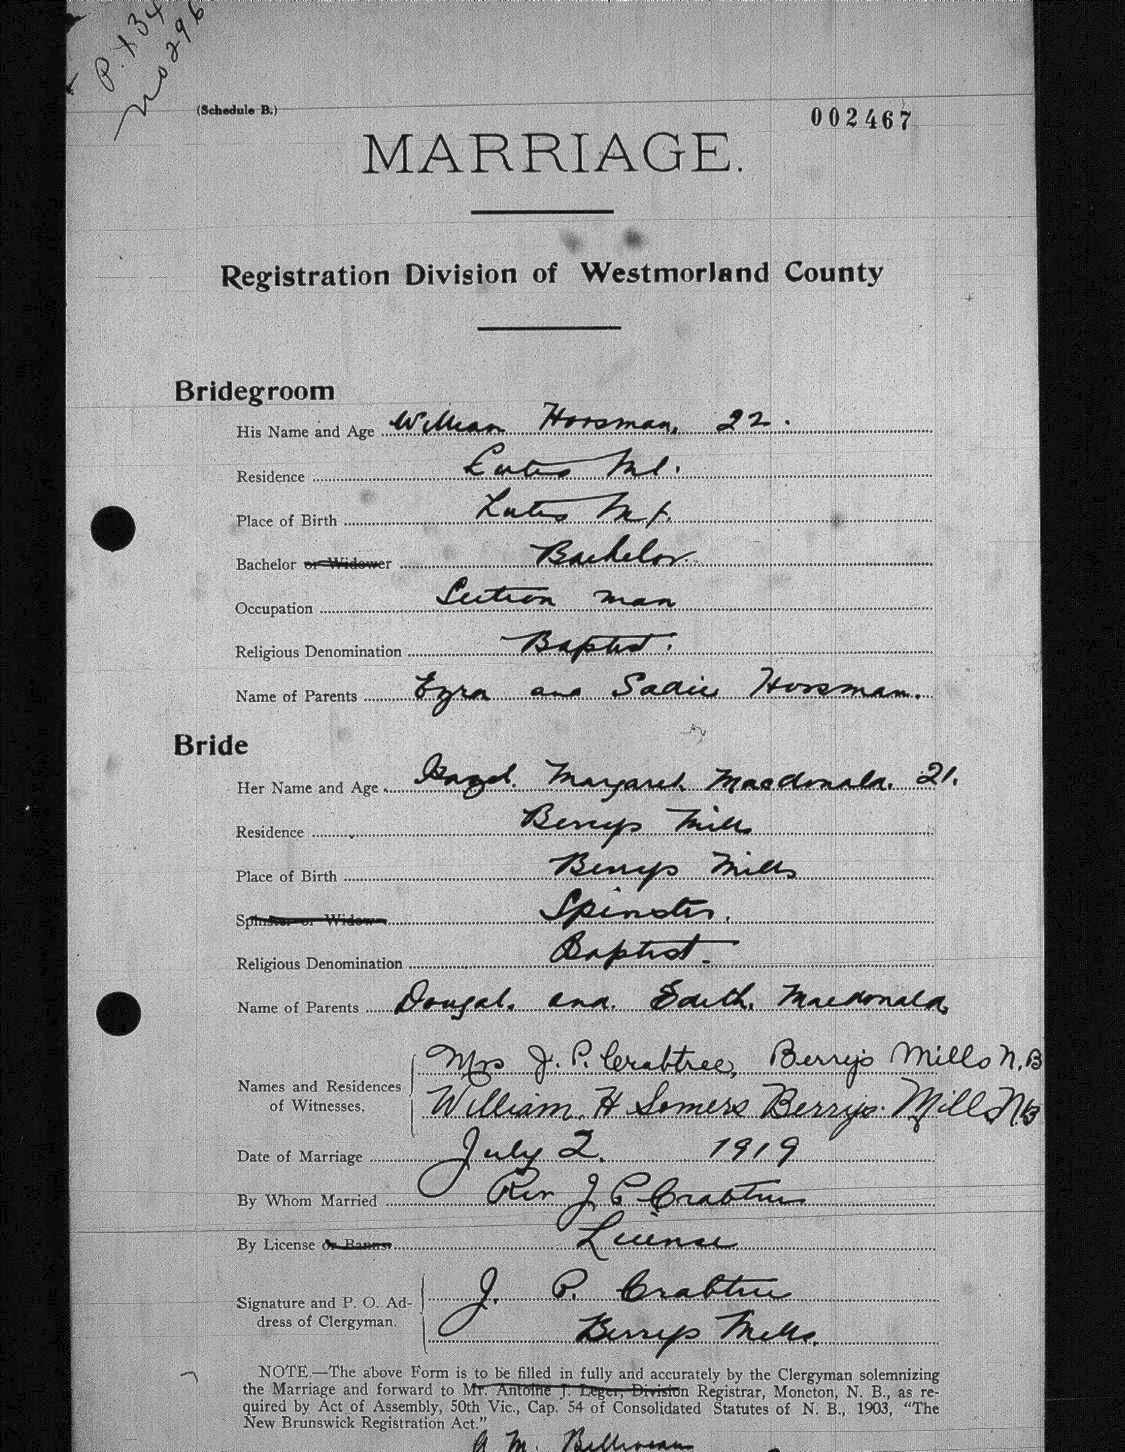 P. X 34
No 296
(Schedule B.)
002467
MARRIAGE.
Registration Division of Westmorland County
Bridegroom
His Name and Age William Horsman, 22.
Residence Lutes Mt.
Place of Birth Lutes Mt.
Bachelor or Widower Bachelor.
Occupation Section man
Religious Denomination Baptist.
Name of Parents Ezra and Sadie Horsman.
Bride
Her Name and Age Hazel. Margaret Macdonald. 21.
Residence Berrys Mills
Place of Birth Berrys Mills
Spinster or Widow Spinster.
Religious Denomination Baptist.
Name of Parents Dougal. and. Edith. Macdonald,
Names and Residences of Witnesses, Mrs J. P. Crabtree, Berry's Mills N.B
William H Somers Berrys Mills N.B
Date of Marriage July 2. 1919
By Whom Married Rev J P Crabtree
By License or Banns License
Signature and P. O. Ad- J. P. Crabtree
dress of Clergyman. Berrys Mills.
NOTE.—The above Form is to be filled in fully and accurately by the Clergyman solemnizing
the Marriage and forward to Mr. Antoine J. Leger, Division Registrar, Moncton, N. B., as re-
quired by Act of Assembly, 50th Vic., Cap. 54 of Consolidated Statutes of N. B., 1903, "The
New Brunswick Registration Act."